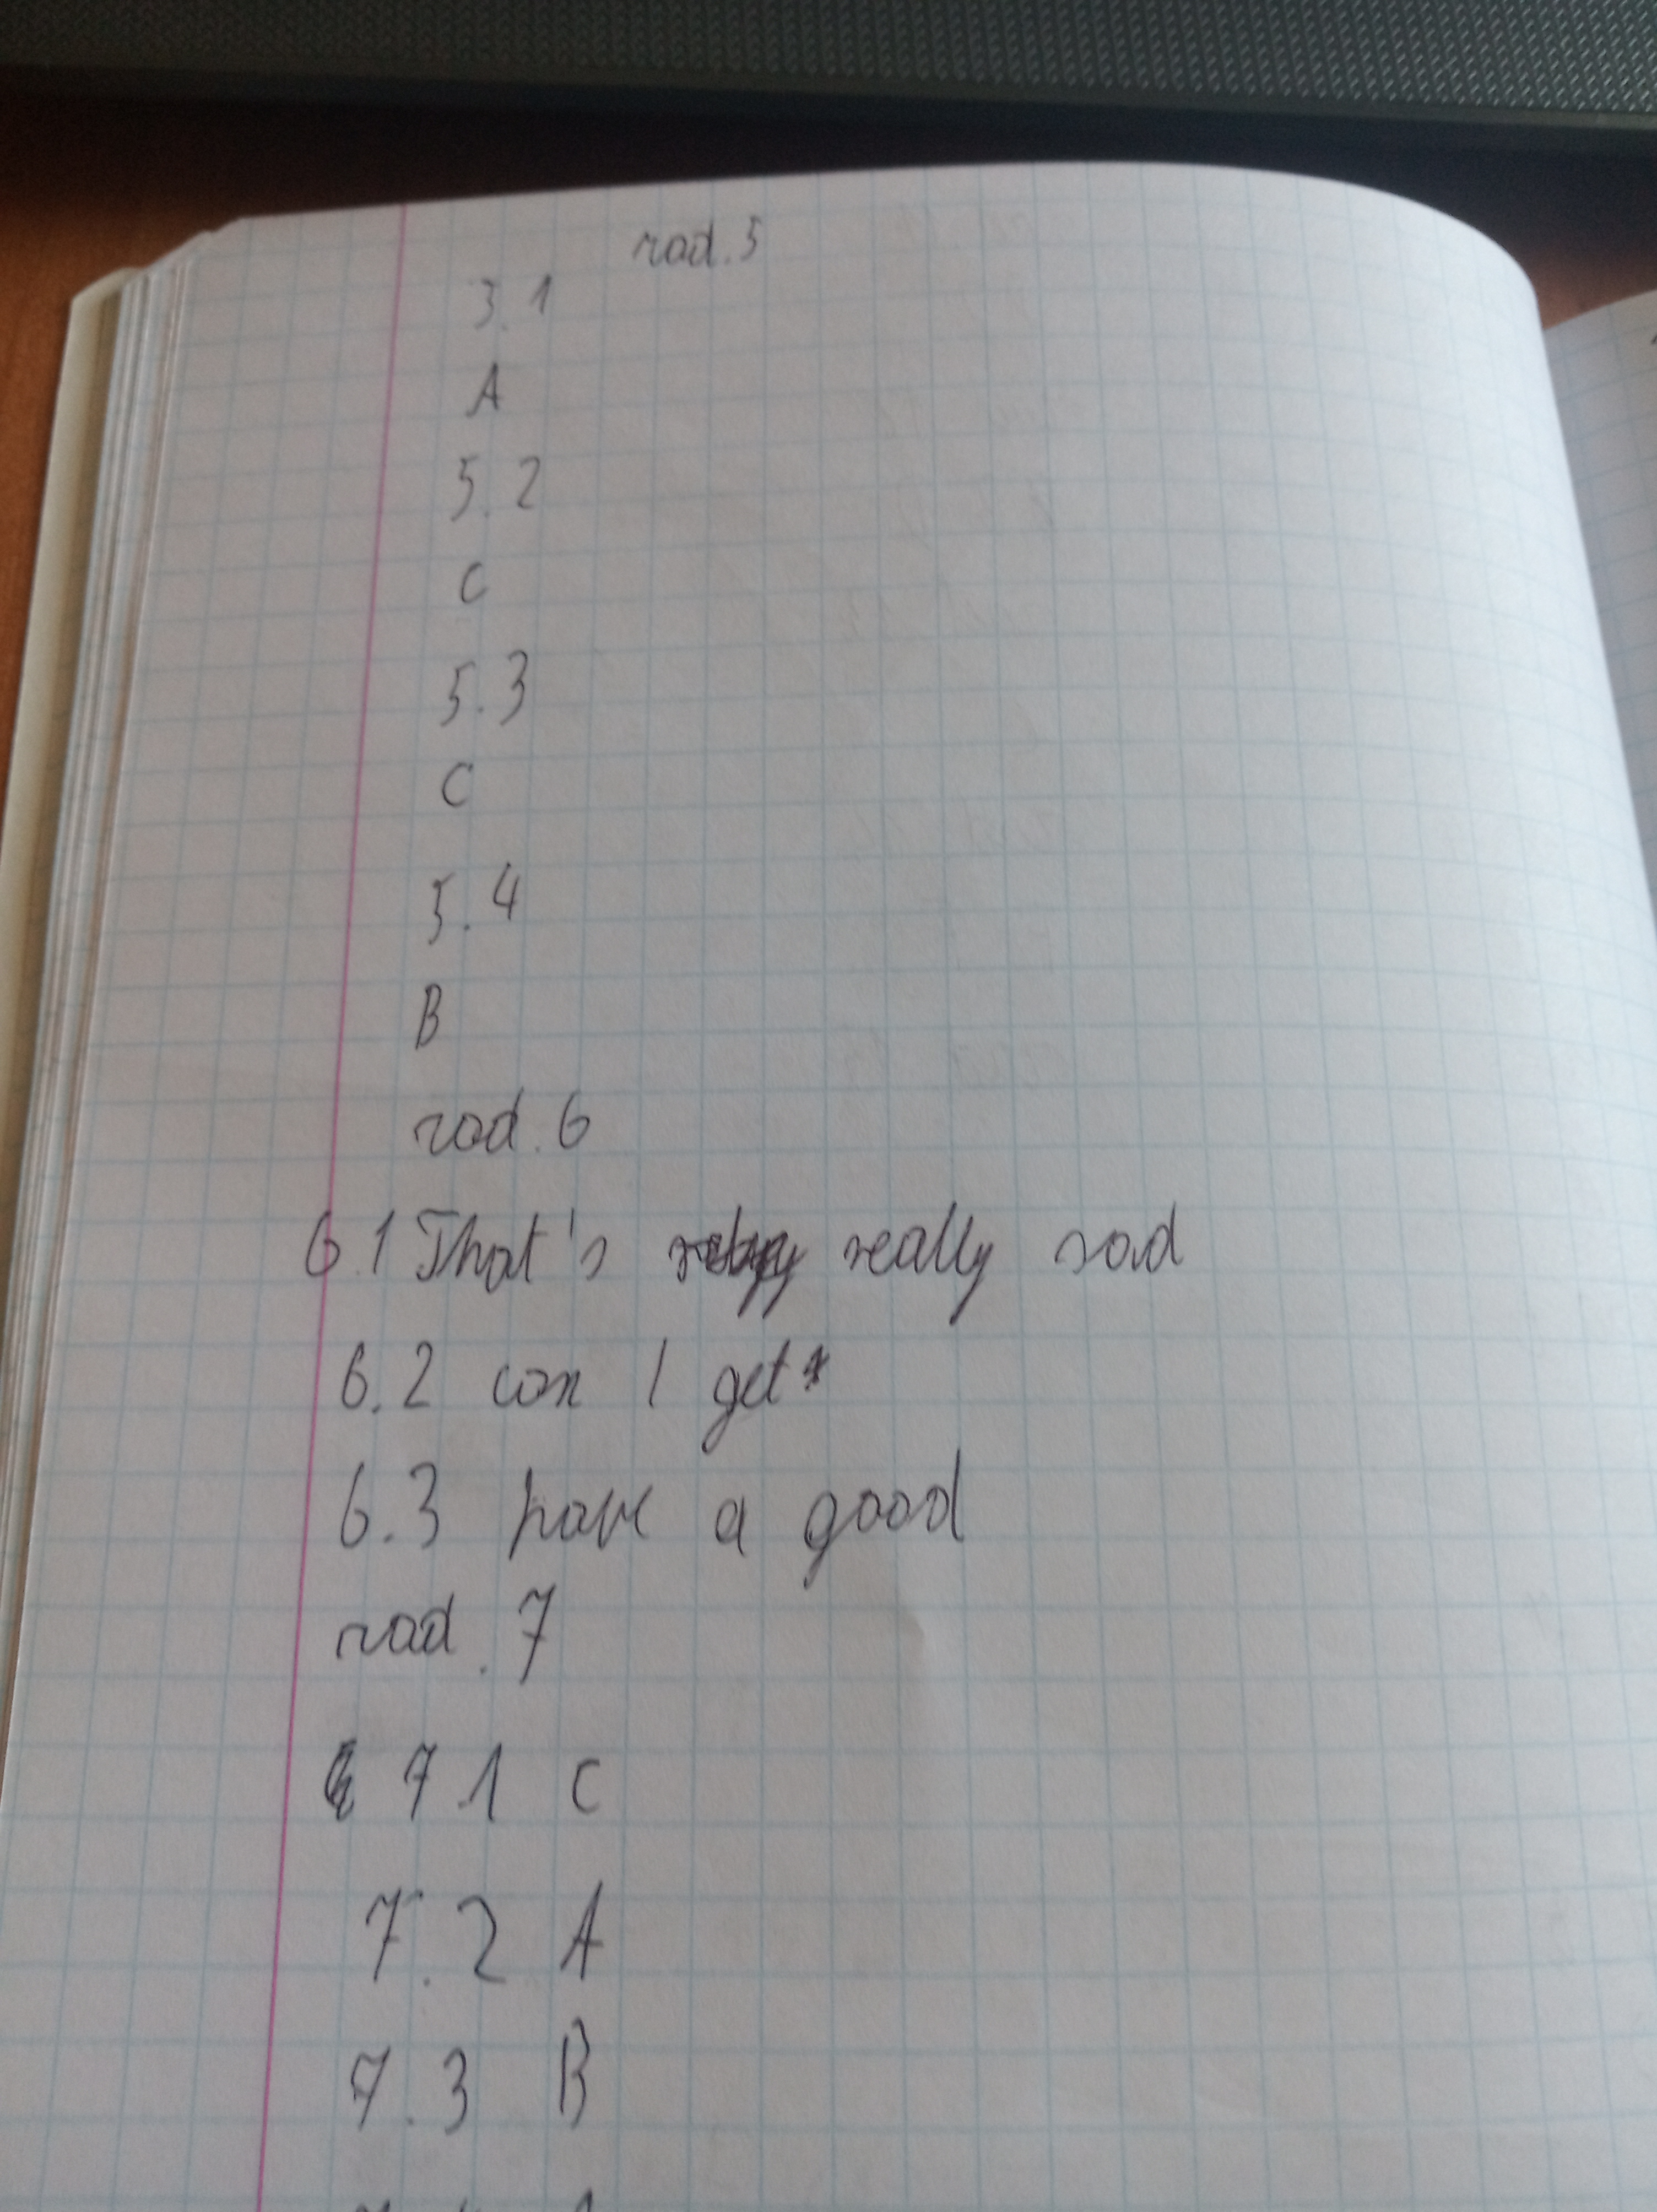 zad. 5
5.1
A
5.2
C
5.3
C
5.4
B
zad. 6
6.1 That's really sad
6.2 can I get
6.3 have a good
zad. 7
7.1 C
7.2 A
7.3 B